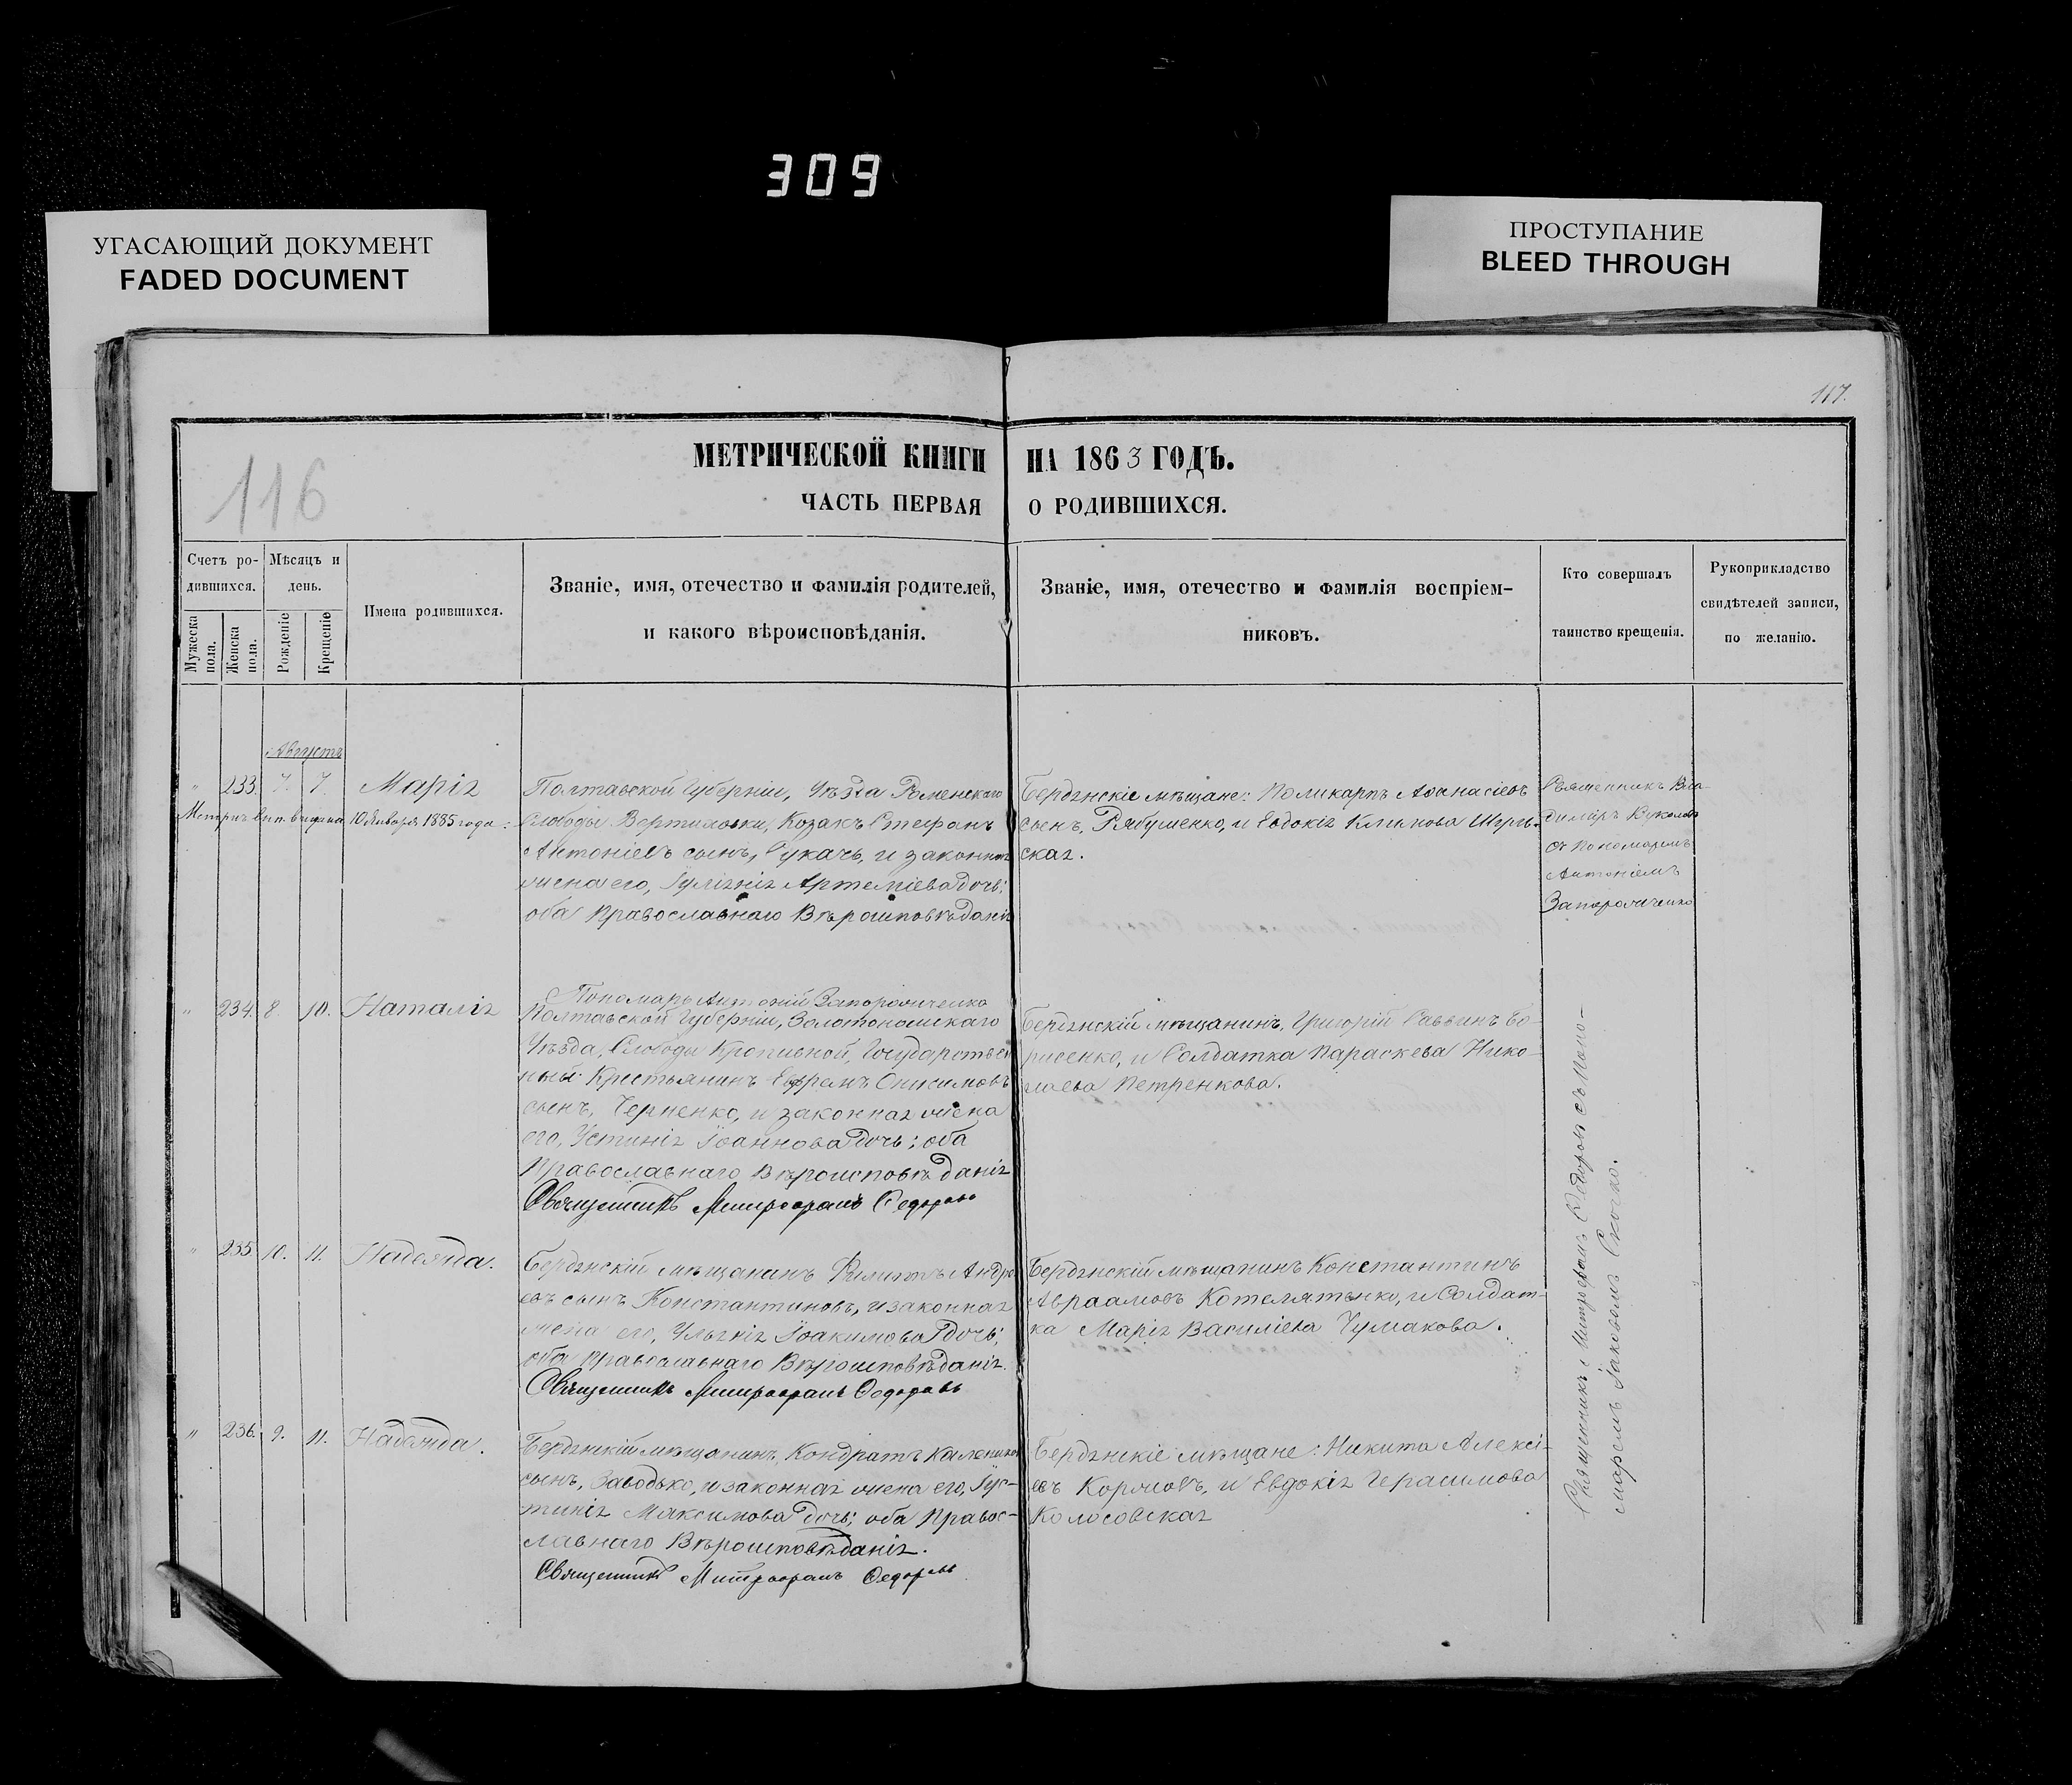 309
УГАСАЮЩИЙ ДОКУМЕНТ
FADED DOCUMENT
ПРОСТУПАНИЕ
BLEED THROUGH
117.
116
МЕТРИЧЕСКОЙ КНИГИ НА 1863 ГОДЪ.
ЧАСТЬ ПЕРВАЯ О РОДИВШИХСЯ.
Счетъ ро-
дившихся.
Мужеска
пола.
Женска
пола.
Мѣсяцъ и
день.
Рожденіе
Крещеніе
Имена родившихся.
Званіе, имя, отечество и фамилія родителей,
и какого вѣроисповѣданія.
Званіе, имя, отечество и фамилія воспріем-
никовъ.
Кто совершалъ
таинство крещенія.
Рукоприкладство
свидѣтелей записи,
по желанію.
Августъ
" 233. 7. 7. Марія
выдана 10 Января 1885 года
Полтавской Губерніи, Уѣзда Роменскаго
Слободы Вертиловки, Козакъ Стефанъ
Антоніевъ сынъ, Сукачь, и законная
жена его, Іуліанія Артеміева дочь;
оба Православнаго Вѣроисповѣданія
Пономарь Антоній Запорожченко
Бердянскіе мѣщане: Поликарпъ Аѳанасіевъ
сынъ, Рябушенко, и Евдокія Климова
ская.
Священникъ Вла-
диміръ
съ Пономаремъ
Антоніемъ
Запорожченко
" 234. 8. 10. Наталія
Полтавской Губерніи, Золотоношскаго
Уѣзда, Слободы Кропивной, Государствен
ный Крестьянинъ Ефремъ Онисимовъ
сынъ, Черненко, и законная жена
его, Устинія Іоаннова дочь; оба
Православнаго Вѣроисповѣданія
Священникъ Митрофанъ Федоровъ
Бердянскій мѣщанинъ, Григорій Саввинъ Бо-
рисенко, и Солдатка Параскева Нико-
лаева Петренкова.
" 235 10. 11. Надежда.
Бердянскій мѣщанинъ Филиппъ Андре
евъ сынъ Константиновъ, и законная
жена его, Ульянія Іоакимова дочь;
оба Православнаго Вѣроисповѣданія.
Священникъ Митрофанъ Федоровъ
Бердянскій мѣщанинъ Константинъ
Авраамовъ Котелятенко, и Солдат-
ка Марія Василіева Чумакова.
" 236. 9. 11. Надежда.
Бердянскій мѣщанинъ, Кондратъ
сынъ, Заводько, и законная жена его, Іус-
тинія Максимова дочь; оба Правос-
лавнаго Вѣроисповѣданія.
Священникъ Митрофанъ Федоровъ
Бердянскіе мѣщане: Никита Алексі-
евъ Коржовъ, и Евдокія Герасимова
Колосовская
Священникъ Митрофанъ Федоровъ съ Поно-
маремъ Іаковомъ Скочко.